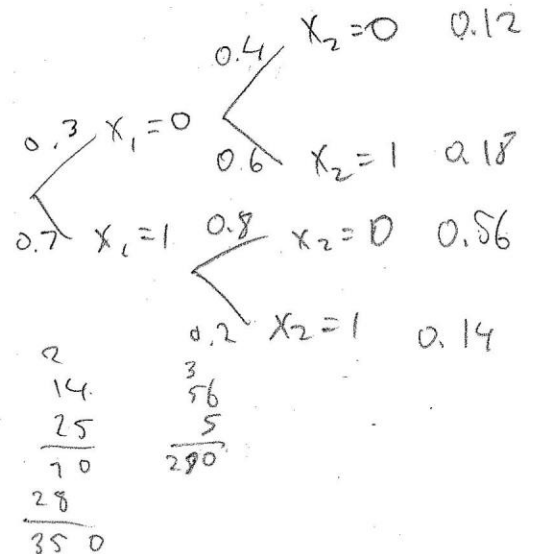 0.4 X₂ = 0 0.12
0.3 X₁ = 0
0.6 X₂ = 1 0.18
0.7 X₁ = 1 0.8 X₂ = 0 0.56
0.2 X₂ = 1 0.14
2
14
25
70
28
350
3
56
5
280